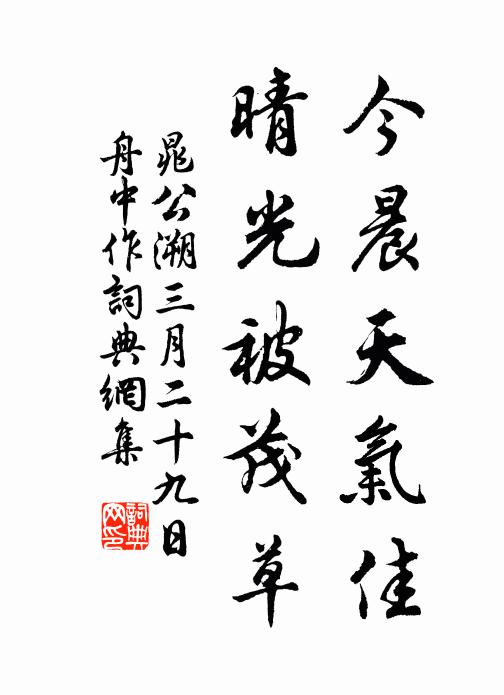 今晨天氣佳
晴光被茂草
晁公溯三月二十九日
舟中作詞典網集
詞典网印